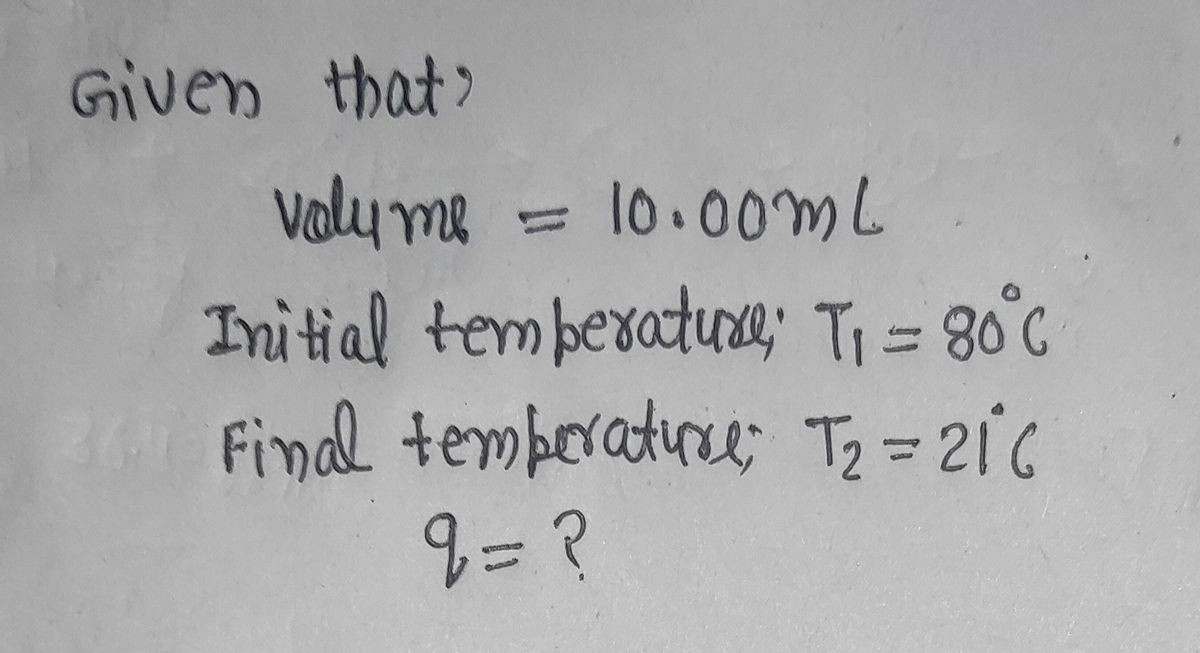 Given that,
Volume = 10.00mL
Initial temperature; T₁ = 80°C
Final temperature; T₂ = 21°C
q = ?